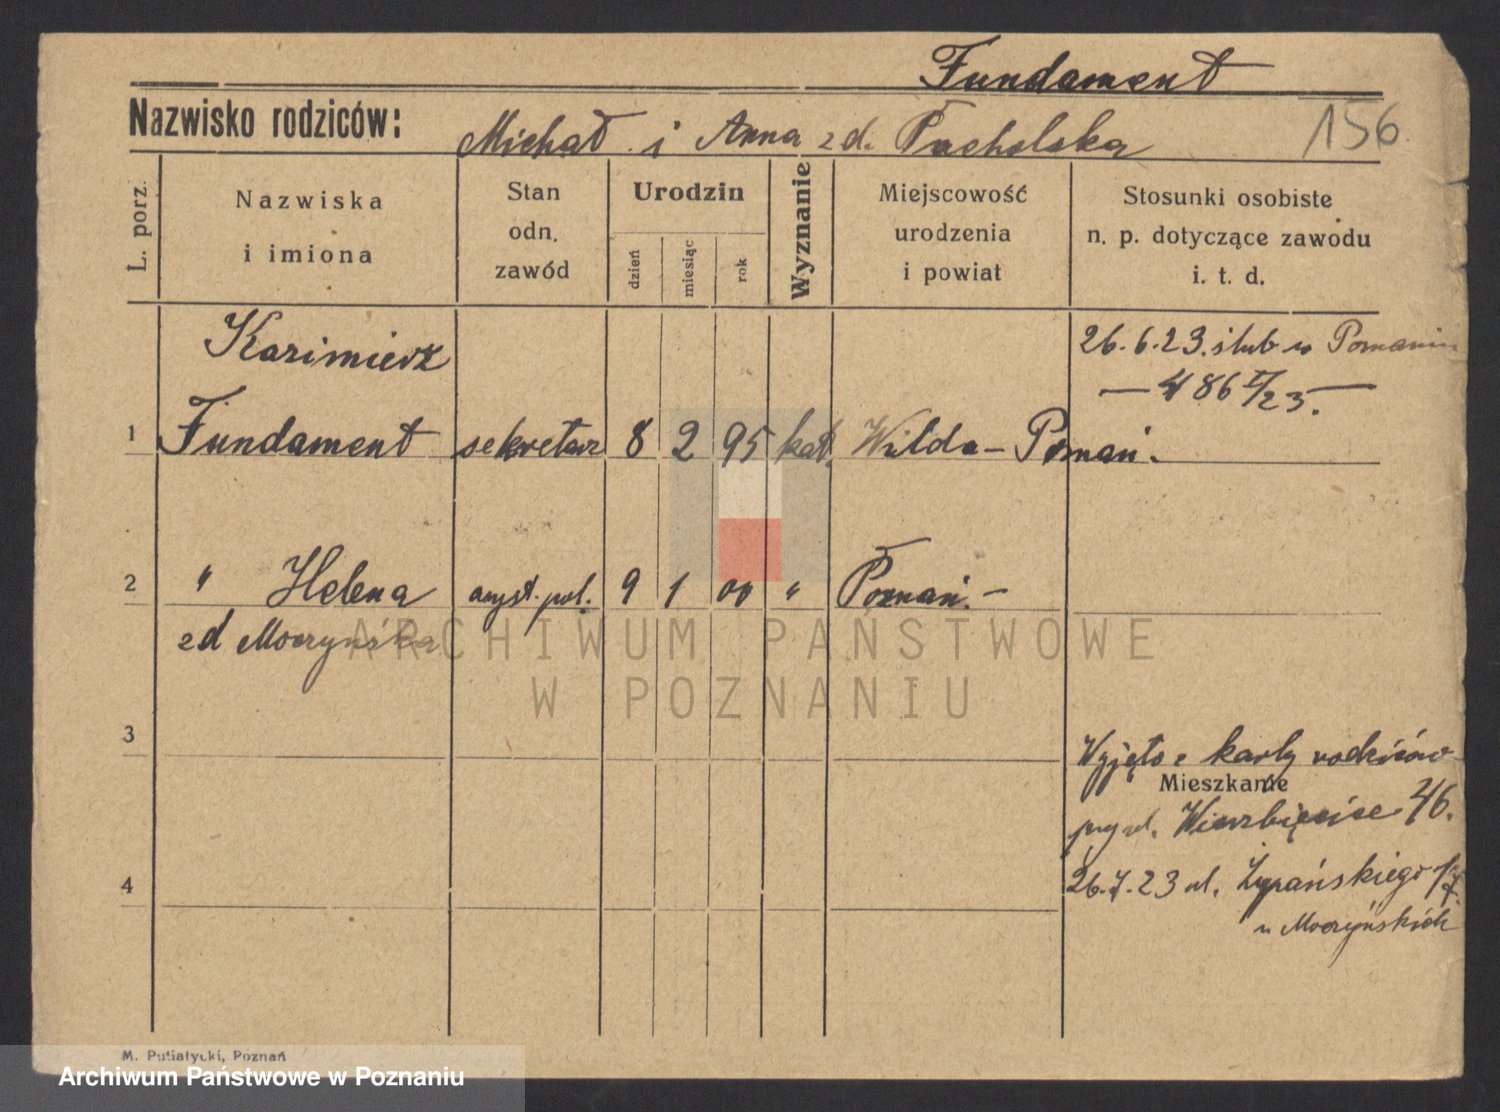 Fundament
Nazwisko rodziców: Michał i Anna zd. Pacholska
156
L. porz.
Nazwiska i imiona
Stan odn. zawód
Urodzin
dzień miesiąc rok
Wyznanie
Miejscowość urodzenia i powiat
Stosunki osobiste n. p. dotyczące zawodu i. t. d.
Kazimierz
26.6.23. ślub w Poznaniu
— 486 I/23. —
1 Fundament sekretarz 8 2 95 kat. Wilda - Poznań.
2 " Helena asyst. pol. 9 1 00 " Poznań. -
zd Moczyńska
ARCHIWUM PAŃSTWOWE
W POZNANIU
3
Wyjęto z karty rodziców
Mieszkanie
przy ul. Wierzbięcice 46.
4
26.7.23 ul. Żupańskiego 17.
u Moczyńskich
M. Putiatycki, Poznań
Archiwum Państwowe w Poznaniu